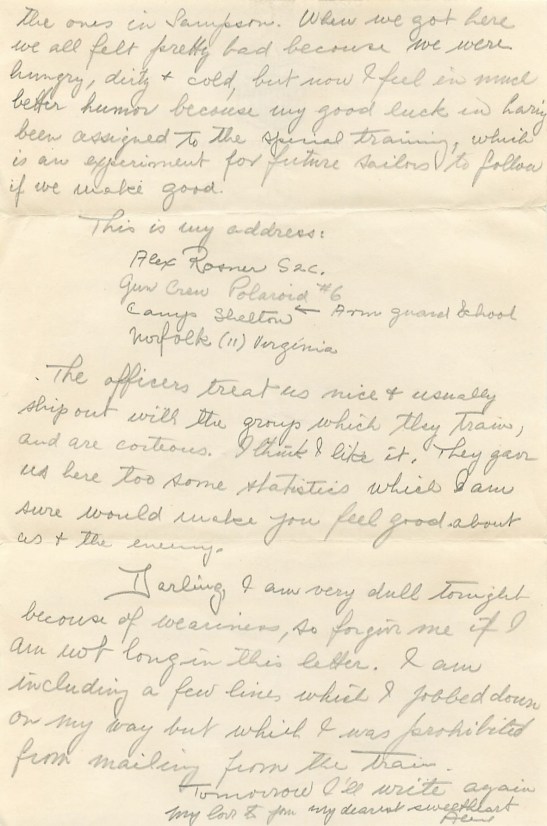 the ones in Sampson. When we got here
we all felt pretty bad because we were
hungry, dirty + cold, but now I feel in much
better humor because my good luck in having
been assigned to the special training, which
is an experiment for future sailors to follow
if we make good.
This is my address:
Alex Rosner S2c.
Gun Crew Polaroid #6
Camp Shelton - Arm guard School
Norfolk (11) Virginia
The officers treat us nice + usually
ship out with the group which they train,
and are corteous. I think I like it. They gave
us here too some statistics which I am
sure would make you feel good about
us + the enemy.
Darling, I am very dull tonight
because of weariness, so forgive me if I
am not long in this letter. I am
including a few lines which I jobbed down
on my way but which I was prohibited
from mailing from the train.
Tomorrow I'll write again
my love to you my dearest sweetheart